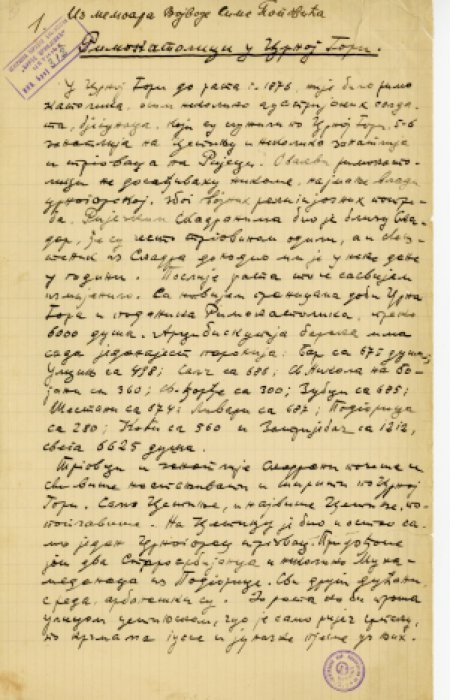 1
Из мемоара Војводе Симе Поповића
Римокатолици у Црној Гори.
У Црној Гори до рата г. 1876, није било римо
католика, осим неколико аустријских солда-
та, бјегунаца, који су служили по Црној Гори, 5-6
занатлија на Цетињу и неколико занатлија
и трговаца на Ријеци. Овакви римокато-
лици не досађиваху никоме, најмање влади
црногорској, због својих религијозних потре-
ба. Ријечким Скадранима био је близу Ска-
дар, ђе су често трговином одили, а и свеш-
теник из Скадра доходио им је у неке дане
у години. Послије рата то се сасвијем
измијенило. Са новијем границама доби Црна
Гора и поданика Римокатолика, преко
6000 душа. Арцибискупија барска има
сада једанајест парохија: Бар са 675 душа;
Улцињ са 458; Салч са 608; Св. Никола на Бо-
јани си 360; Св. Ђорђе са 300; Зубци са 685;
Шестани са 674; Ливари са 687; Подгорица
са 280; Кочи са 560 и Затријебач са 1212,
свега 6625 душа.
Трговци и занатлије Скадрани почеше и
све више настањивати и ширити по Црној
Гори. Само Цетиње, и највише Цетиње, по-
појгавише. На Цетињу је био и остао са-
мо један Црногорац трговац. Придођоше
још два Старосрбијанца и неколико Муха-
меданаца из Подгорице. Сви други дућани,
с реда, арбанашки су. До рата ко би прошао
улицом цетињском, чуо је само ријеч српску,
по крчмама гусле и јуначке пјесне уз њих.